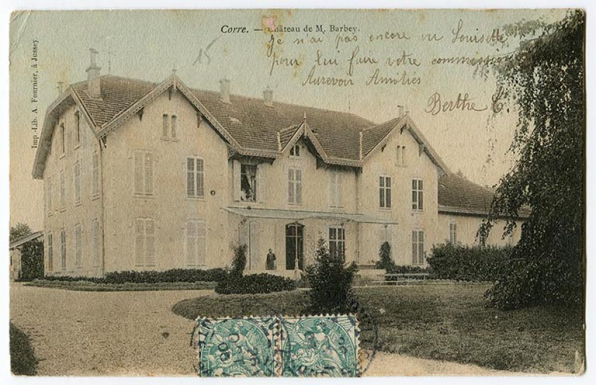 Corre. — Château de M. Barbey.
15
Je n'ai pas encore vu Louisette
pour lui faire votre commission
Aurevoir Amitiés
Berthe C.
Imp.-Lib. A. Fournier, à Jussey